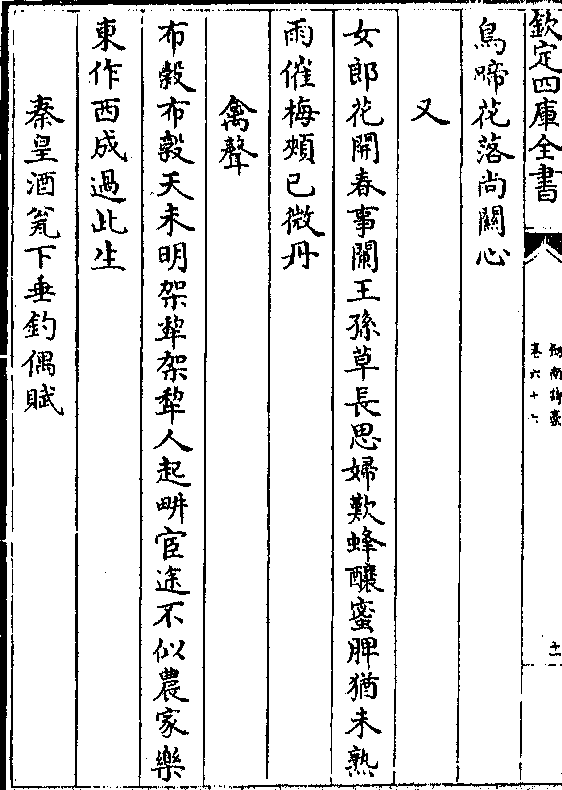 欽定四庫全書
劍南詩藁
卷六十六
鳥啼花落尚關心
又
女郎花開春事闌王孫草長思婦歎蜂釀蜜脾猶未熟
雨催梅頰已微丹
禽聲
布穀布穀天未明架犂架犂人起畊宦途不似農家樂
東作西成過此生
秦皇酒瓮下垂釣偶賦